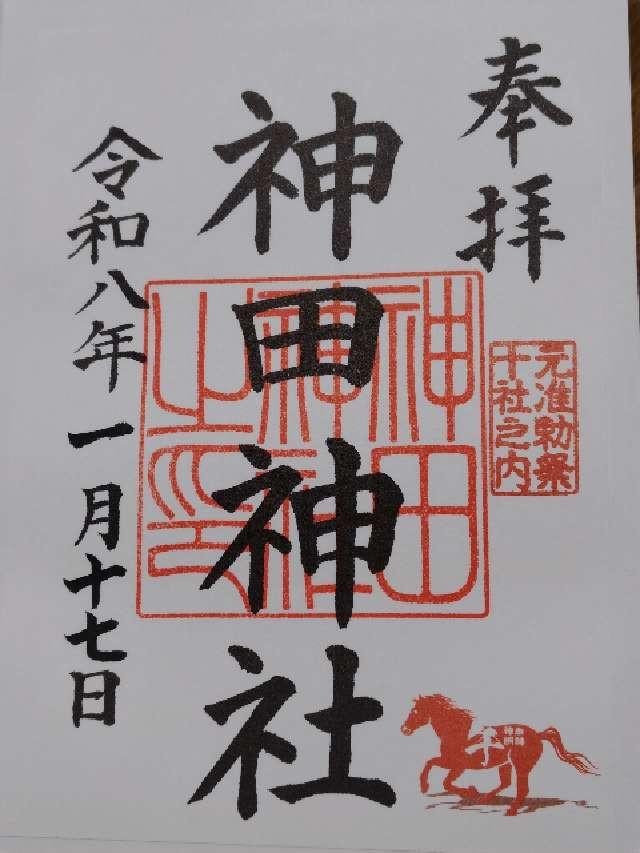 奉拝
元准勅祭
十社之内
神田神社
神田
神社
之印
令和八年一月十七日